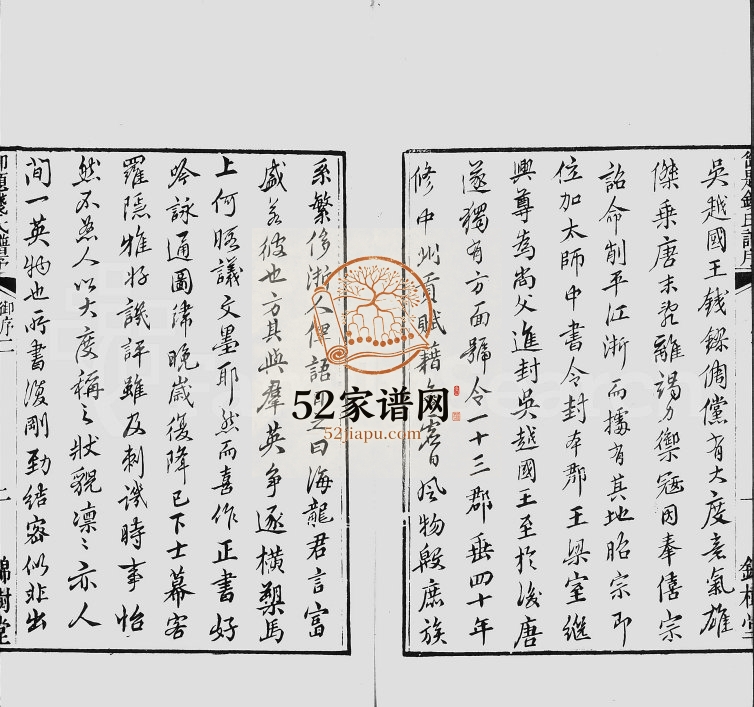 吳越國王錢鏐倜儻有大度意氣雄
傑乘唐末亂離竭力禦寇因奉僖宗
詔命削平江浙而據有其地昭宗即
位加太師中書令封本郡王梁室繼
興尊為尚父進封吳越國王至於後唐
遂獨有方面號令一十三郡垂四十年
修中州貢賦藉
風物殷庶族
系繁侈浙人俚語
曰海龍君言富
盛若彼也方其與羣英爭逐橫槊馬
上何暇議文墨耶然而喜作正書好
吟詠通圖緯晚歲復降己下士幕客
羅隱雅好譏評雖及刺譏時事怡
然不怒人以大度稱之狀貌凛〻亦人
間一英物也所書復剛勁結密似非出
御題錢氏譜序
御序二
二
錦樹堂
52家谱网
52jiapu.com